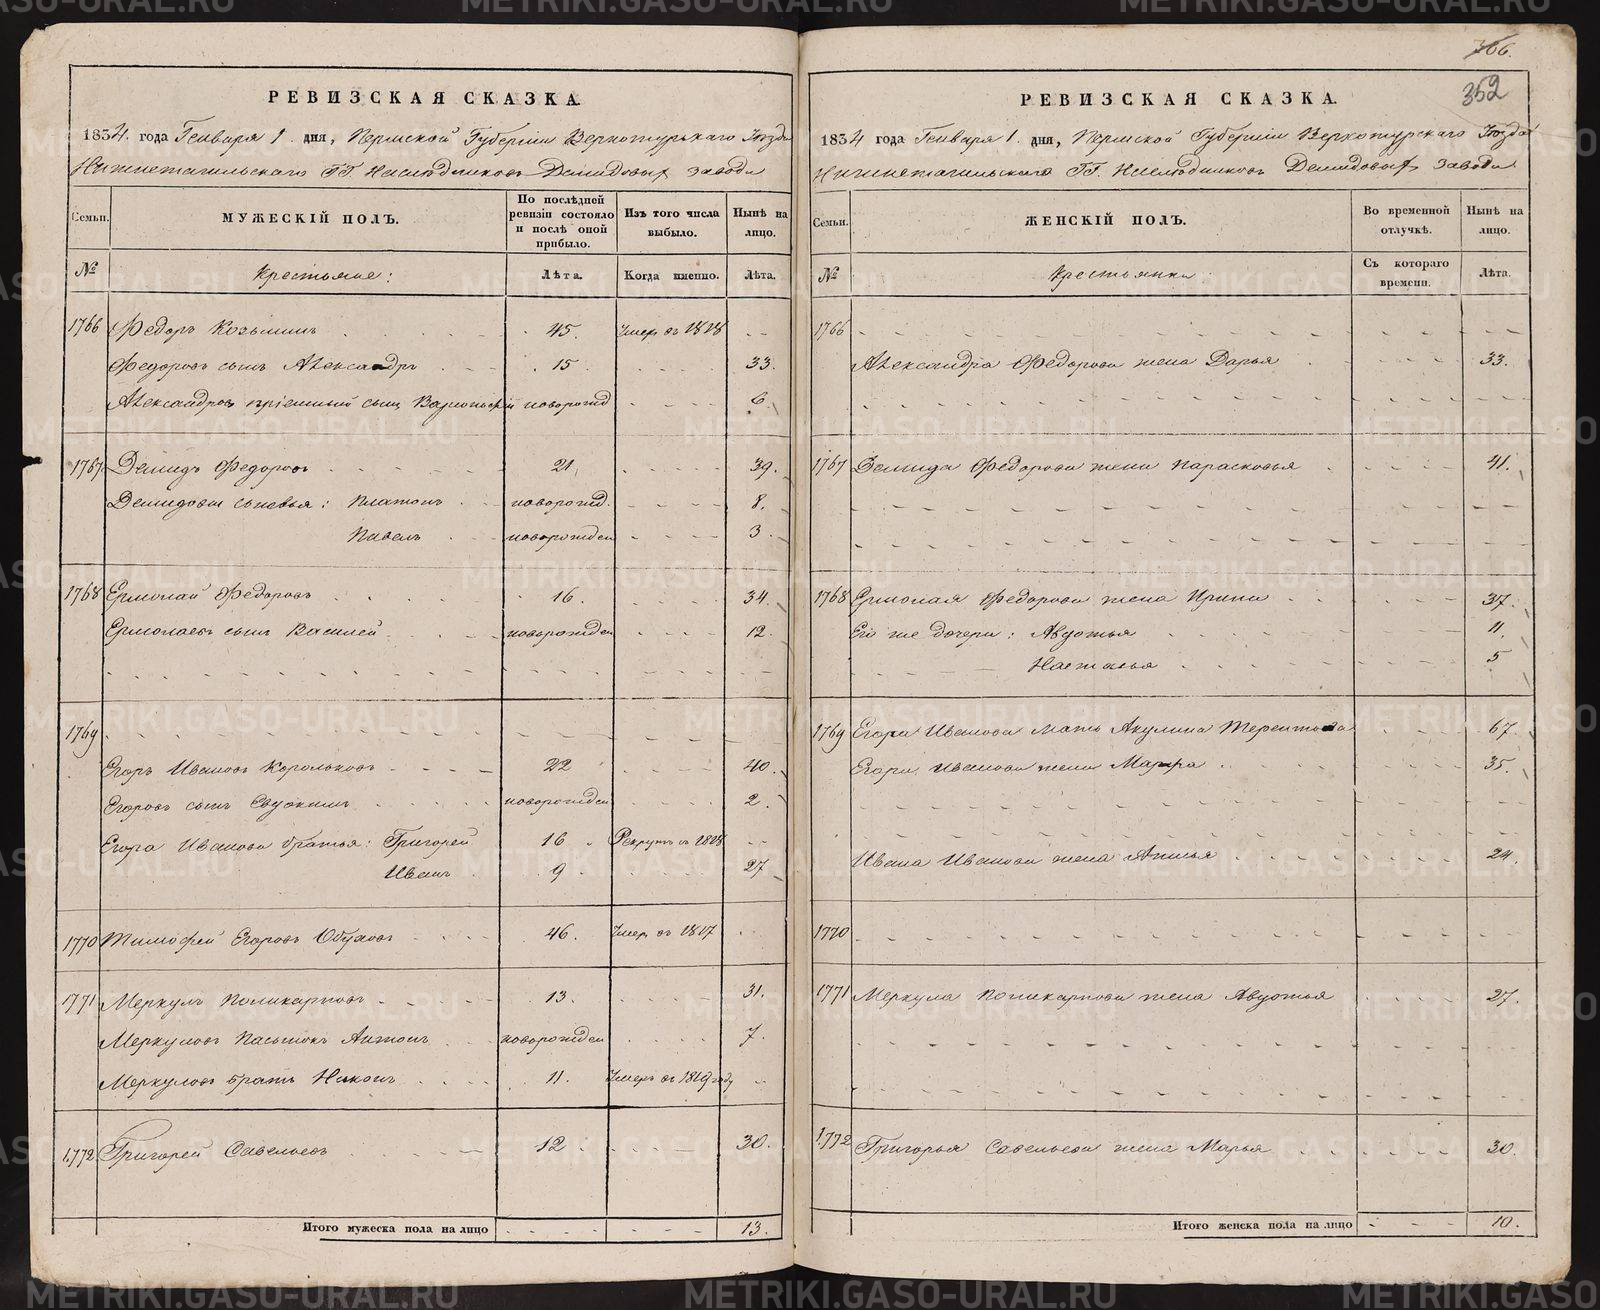 366.
352
РЕВИЗСКАЯ СКАЗКА.
1834. года Генваря 1. дня, Пермской Губерніи Верхотурскаго Уѣзда
Нижнетагильскаго ГГ. Наслѣдниковъ Демидовыхъ завода
Семьи.
МУЖЕСКІЙ ПОЛЪ.
По послѣдней ревизіи состояло и послѣ оной прибыло.
Изъ того числа выбыло.
Нынѣ на лицо.
№ Крестьяне: Лѣта. Когда именно. Лѣта.
1766 Федоръ Козьминъ 45. Умеръ въ 1828
Федоровъ сынъ Александръ 15 33.
Александровъ пріемный сынъ новорожд 6.
1767 Демидъ Федоровъ 21. 39.
Демидовы сыновья: Платонъ новорожд. 8.
Павелъ новорожден 3.
1768 Ермолай Федоровъ 16. 34.
Ермолаевъ сынъ Василей новорожден 12.
1769
Егоръ Ивановъ Корольковъ 22 40.
Егоровъ сынъ Евдокимъ новорожден 2.
Егора Иванова братья: Григорей 16 Рекрутъ съ 1828
Иванъ 9. 27
1770 Тимофей Егоровъ Обуховъ 46. Умеръ въ 1817
1771 Меркулъ Поликарповъ 13. 31.
Меркуловъ Пасынокъ Антонъ новорожден 7.
Меркуловъ братъ Никонъ 11. Умеръ въ 1819 году
1772 Григорей Савельевъ 12 30.
Итого мужеска пола на лицо 13.
РЕВИЗСКАЯ СКАЗКА.
1834 года Генваря 1. дня, Пермской Губерніи Верхотурскаго Уѣзда
Нижнетагильскаго ГГ. Наслѣдниковъ Демидовыхъ завода
Семьи.
ЖЕНСКІЙ ПОЛЪ.
Во временной отлучкѣ.
Нынѣ на лицо.
№ Крестьянки Съ котораго времени. Лѣта.
1766
Александра Федорова жена Дарья 33.
1767 Демида Федорова жена Парасковья 41.
1768 Ермолая Федорова жена Ирина 37.
Его же дочери: Авдотья 11.
Настасья 5
1769 Егора Иванова мать Акулина Терентьева 67
Егора Иванова жена Марфа 35.
Ивана Иванова жена Анисья 24.
1770
1771 Меркула Поликарпова жена Авдотья 27.
1772 Григорья Савельева жена Марья 30.
Итого женска пола на лицо 10.
METRIKI.GASO-URAL.RU